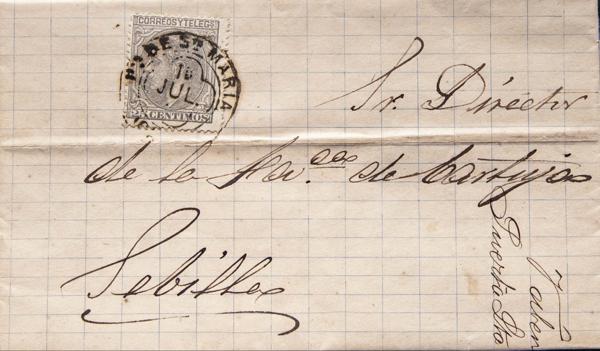 CORREOS Y TELEGS
Pto DE Sta MARIA
18
JUL.
25 CENTIMOS
Sr. Director
de la de Cartuja
Sebilla
Puerta Sta